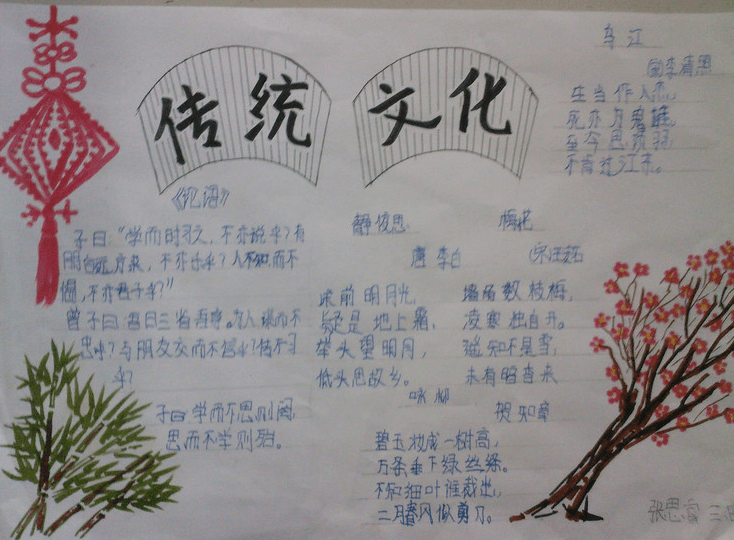 传统 文化
乌江
李清照
生当作人杰，
死亦为鬼雄。
至今思项羽，
不肯过江东。
《论语》
子曰："学而时习之，不亦说乎？有
朋自远方来，不亦乐乎？人不知而不
愠，不亦君子乎？"
曾子曰：吾日三省吾身。为人谋而不
忠乎？与朋友交而不信乎？传不习
乎？
子曰：学而不思则罔，
思而不学则殆。
静夜思
唐 李白
床前明月光，
疑是地上霜，
举头望明月，
低头思故乡。
梅花
（宋 王安石
墙角数枝梅，
凌寒独自开。
遥知不是雪，
未有暗香来
咏柳
贺知章
碧玉妆成一树高，
万条垂下绿丝绦。
不知细叶谁裁出，
二月春风似剪刀。
张思睿 三